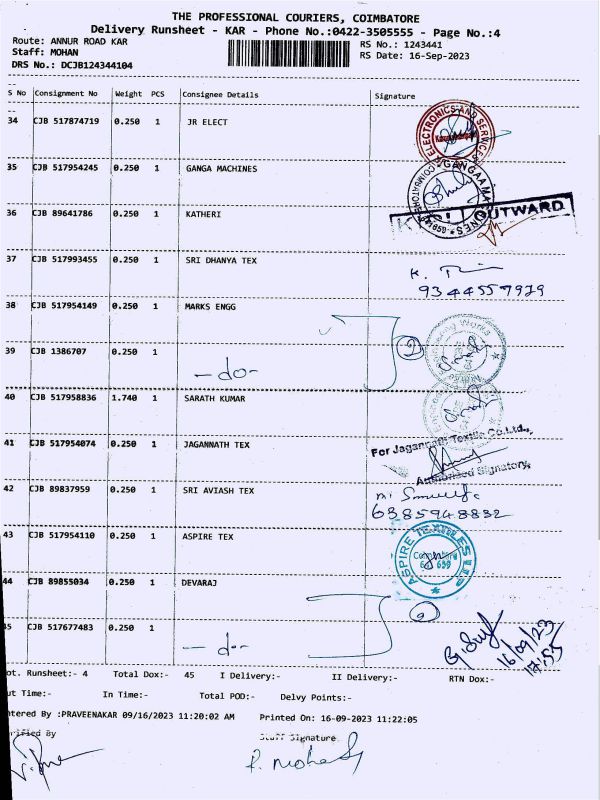 THE PROFESSIONAL COURIERS, COIMBATORE
Delivery Runsheet - KAR - Phone No.:0422-3505555 - Page No.:4
Route: ANNUR ROAD KAR
RS No.: 1243441
Staff: MOHAN
RS Date: 16-Sep-2023
DRS No.: DCJB124344104
S No Consignment No Weight PCS Consignee Details Signature
34 CJB 517874719 0.250 1 JR ELECT
ELECTRONICS AND SERVICES
35 CJB 517954245 0.250 1 GANGA MACHINES
GANGAA MA
COIMBATORE
36 CJB 89641786 0.250 1 KATHERI
OUTWARD
37 CJB 517993455 0.250 1 SRI DHANYA TEX
9344557979
38 CJB 517954149 0.250 1 MARKS ENGG
39 CJB 1386707 0.250 1
-do-
2
40 CJB 517958836 1.740 1 SARATH KUMAR
41 CJB 517954074 0.250 1 JAGANNATH TEX
For Jagannath Textile Co.Ltd.,
Authorised Signatory
42 CJB 89837959 0.250 1 SRI AVIASH TEX
6385948832
43 CJB 517954110 0.250 1 ASPIRE TEX
ASPIRE TEXTILES LLP
Coimbatore
44 CJB 89855034 0.250 1 DEVARAJ
45 CJB 517677483 0.250 1
-do-
16/09/23
17:55
ot. Runsheet:- 4 Total Dox:- 45 I Delivery:- II Delivery:- RTN Dox:-
ut Time:- In Time:- Total POD:- Delvy Points:-
ntered By :PRAVEENAKAR 09/16/2023 11:20:02 AM Printed On: 16-09-2023 11:22:05
rified By Staff Signature
P. Mohan